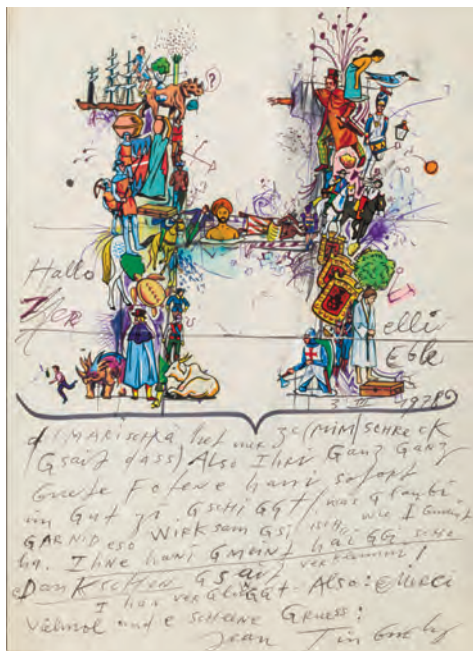 ?
Hallo
Herr
elli
Eble
3 III 1978
d! MARISCHA het mir zc (MIM) SCHRECK
(Gsait dass) Also Ihri Ganz Ganz
Guete Fotene hani sofort
im Gut zu GSCHIGGT / was Glaubi
GARNID eso WIRKSAM GSI isch, wie I Gmeint
ha. Ihne hani Gmeint haigg i scho
DANKSCHEN Gsait
I ha vergliggt - Also: Mirci
vielmol und e scheene Gruess:
Jean Tinguely